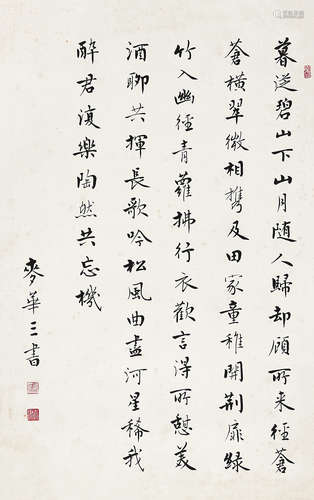 暮從碧山下山月随人歸却顧所来徑蒼
蒼横翠微相携及田家童稚開荆扉緑
竹入幽徑青蘿拂行衣歡言得所憩美
酒聊共揮長歌吟松風曲盡河星稀我
醉君復樂陶然共忘機
麥華三書